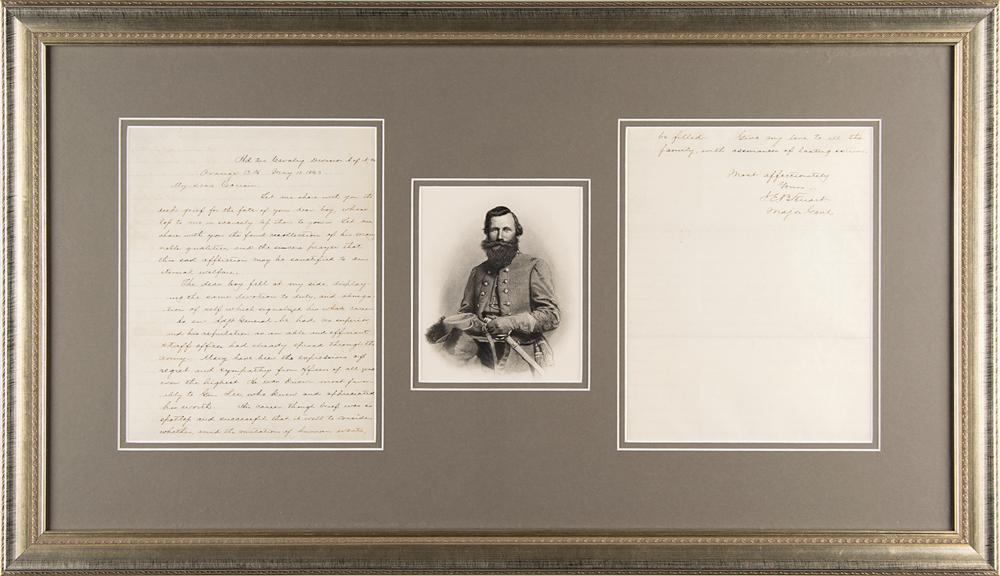 Hd Qrs Cavalry Division
Orange C.H. May 1863
My dear Cousin
Let me share with you the
deep grief for the fate of your dear boy, whose
loss to me is scarcely less than to you. Let me
share with you the fond recollection of his many
noble qualities and the sincere prayer that
this sad affliction may be sanctified to our
eternal welfare.
The dear boy fell at my side, display-
ing the same devotion to duty, and abnega-
tion of self which signalized his whole career
As an Adjt General he had no superior
and his reputation as an able and efficient
Staff officer had already spread through the
army. Many have been the expressions of
regret and sympathy from officers of all
even the highest. He was known most favor-
ably to Gen. Lee who knew and appreciated
his worth. His career though brief was so
spotless and successful that it well to consider
whether, amid the mutation of human events,
be filled. Give my love to all the
family, with assurances of lasting
Most affectionately
Yours
J.E.B Stuart
Major Genl